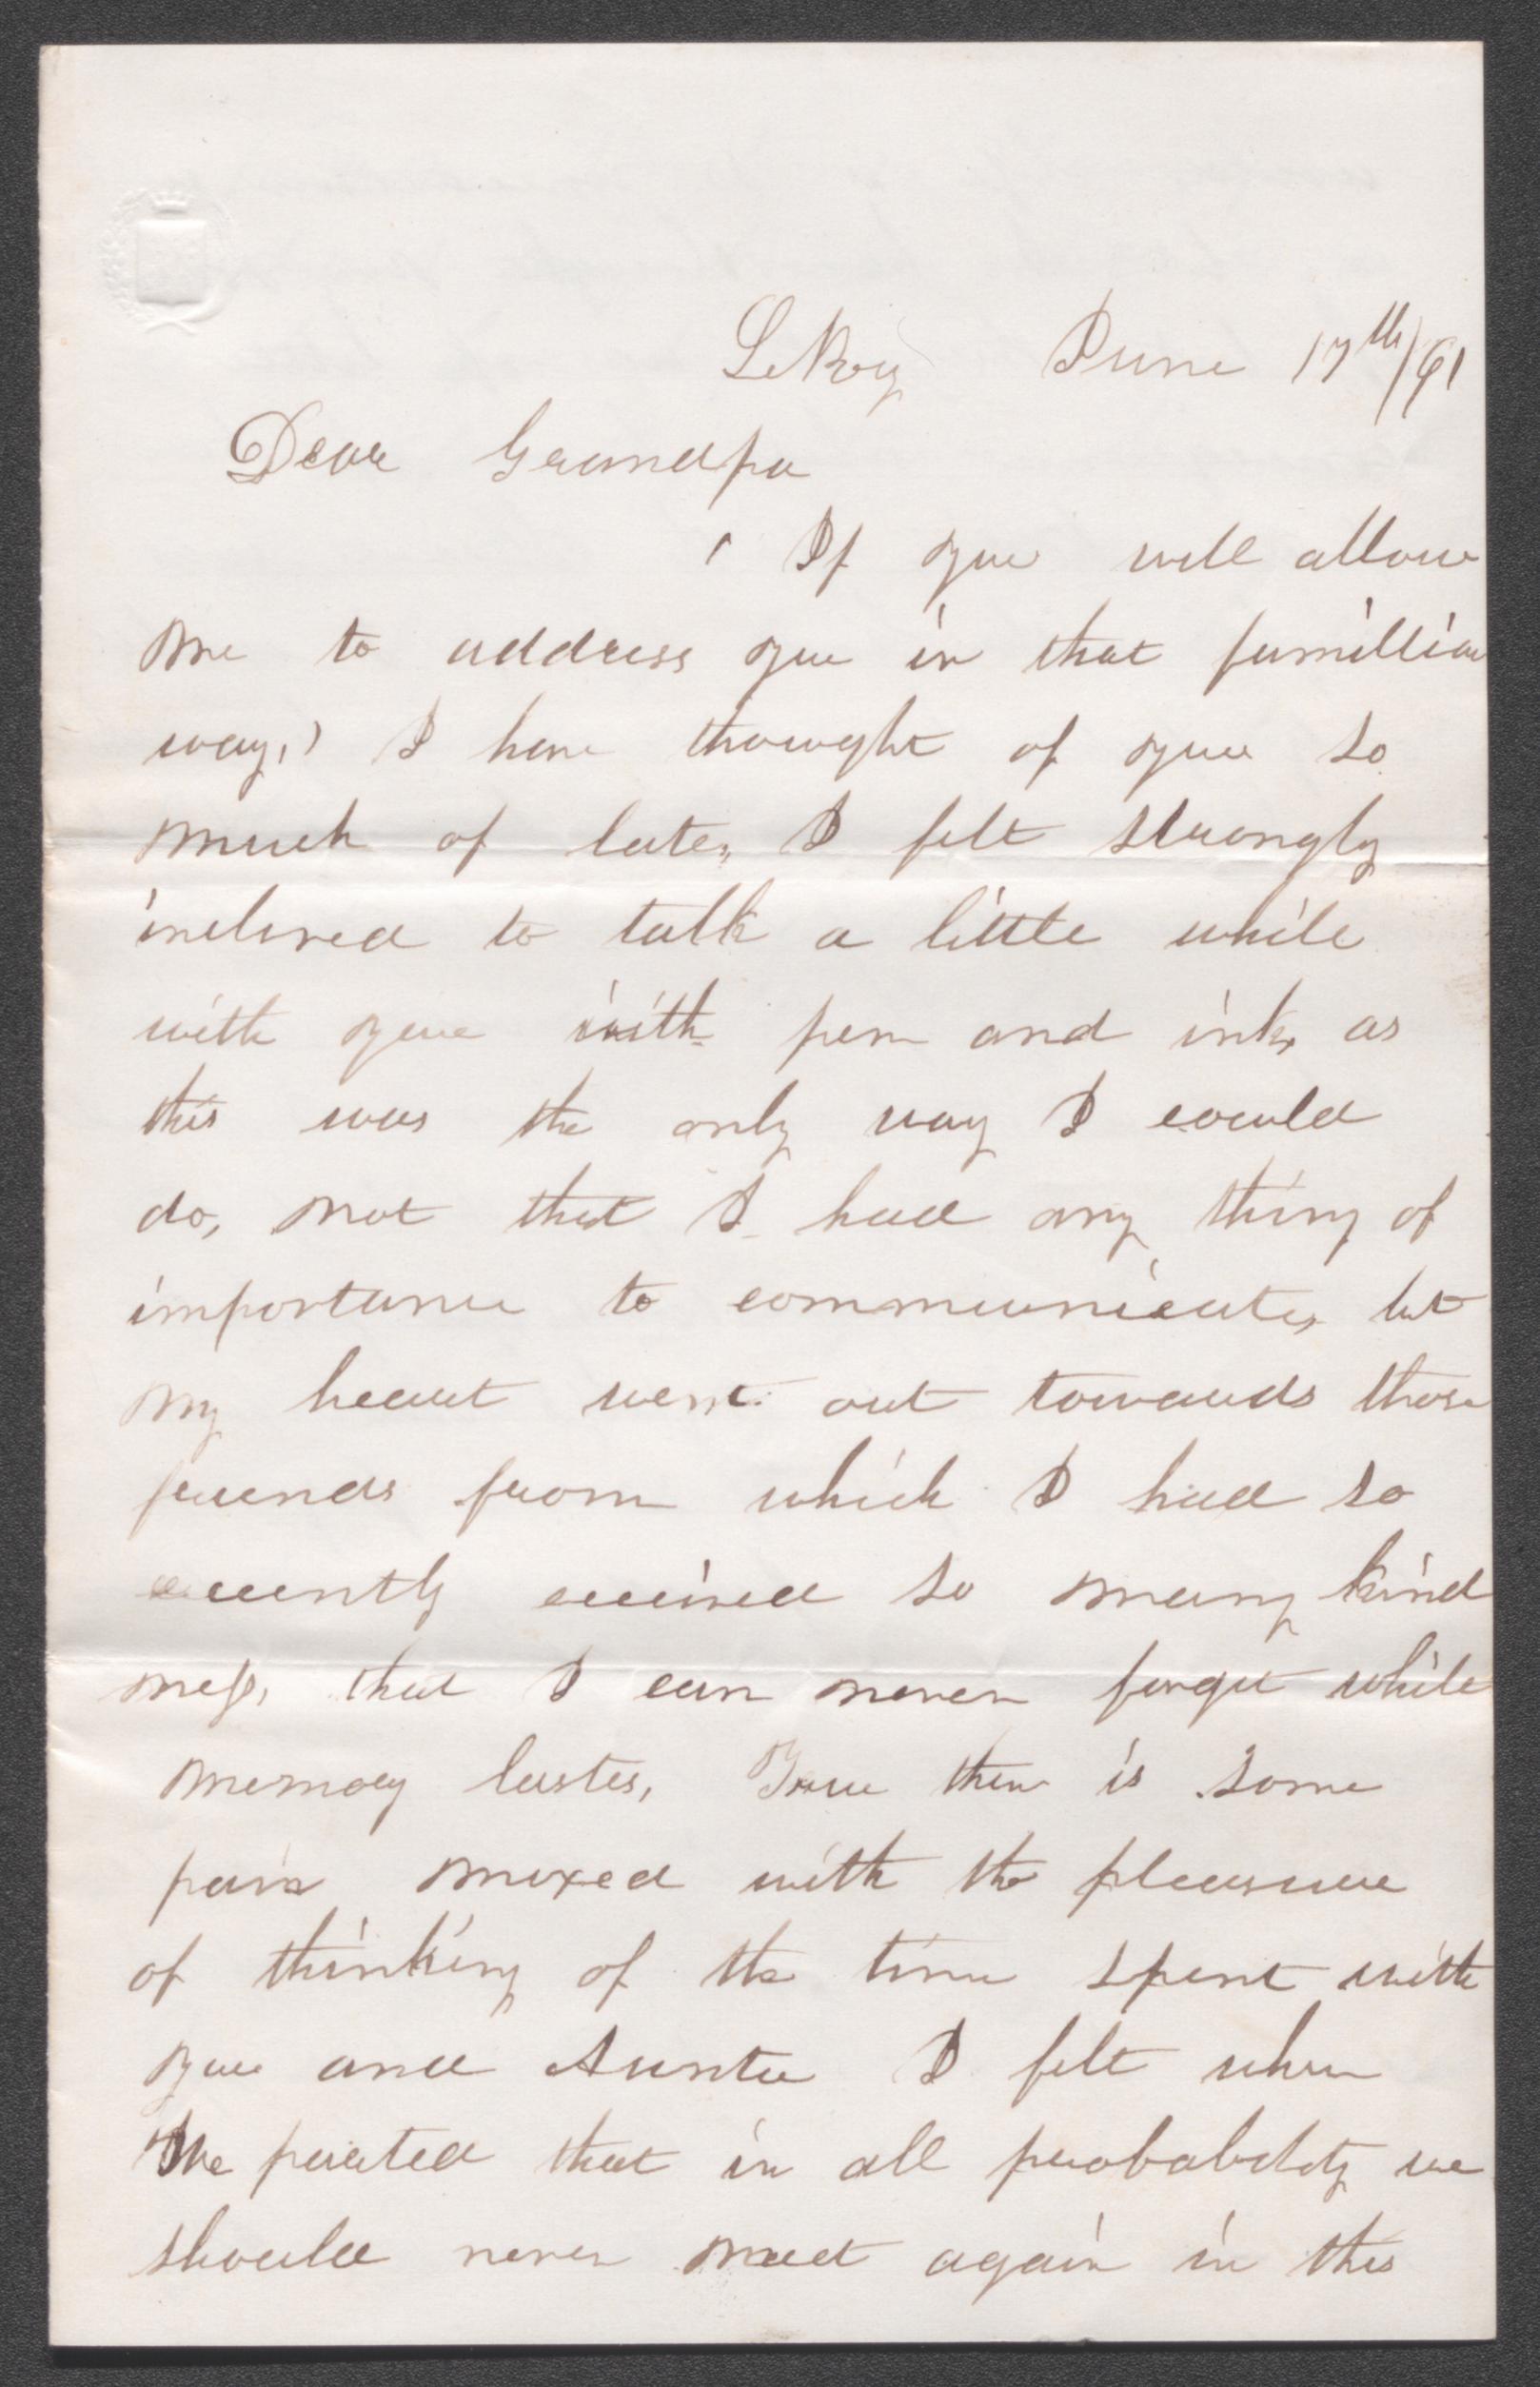 LeRoy June 17th/61
Dear Grandpa
( If you will allow
me to address you in that familliar
way,) I have thought of you so
much of late, I felt strongly
inclined to talk a little while
with you with pen and ink, as
this was the only way I could
do, not that I had any thing of
importance to communicate, but
my heart went out towards those
friends from which I had so
recently received so many kind
ness, that I can never forget while
memory lastes, True there is some
pain mixed with the pleasure
of thinking of the time spent with
you and Auntie I felt when
We parted that in all probability we
should never meet again in this